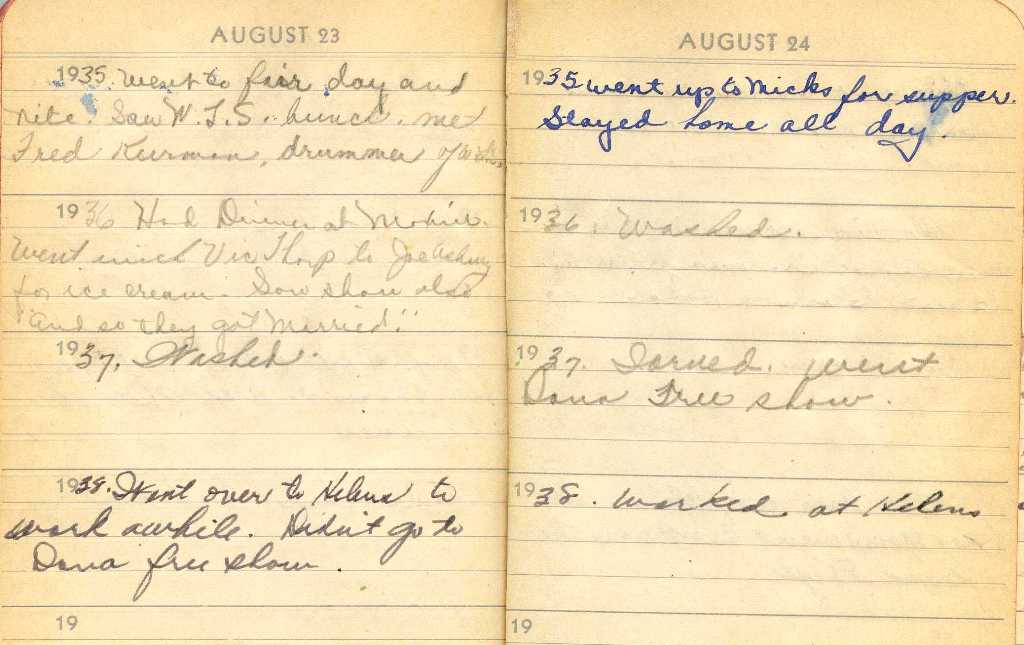 AUGUST 23
1935. Went to fair day and
nite. Saw W.L.S. bunch. met
Fred, drummer
1936 Had Dinner at
Went with Vic Thorp to Joe
for ice cream. Saw show also
"And so they got Married."
1937. Washed.
1938. Went over to Helens to
work awhile. Didn't go to
Dana free show.
19
AUGUST 24
1935 went up to Micks for supper.
Stayed home all day.
1936. Washed.
1937. Iorned. went
Dana Free show.
1938. Worked at Helens
19